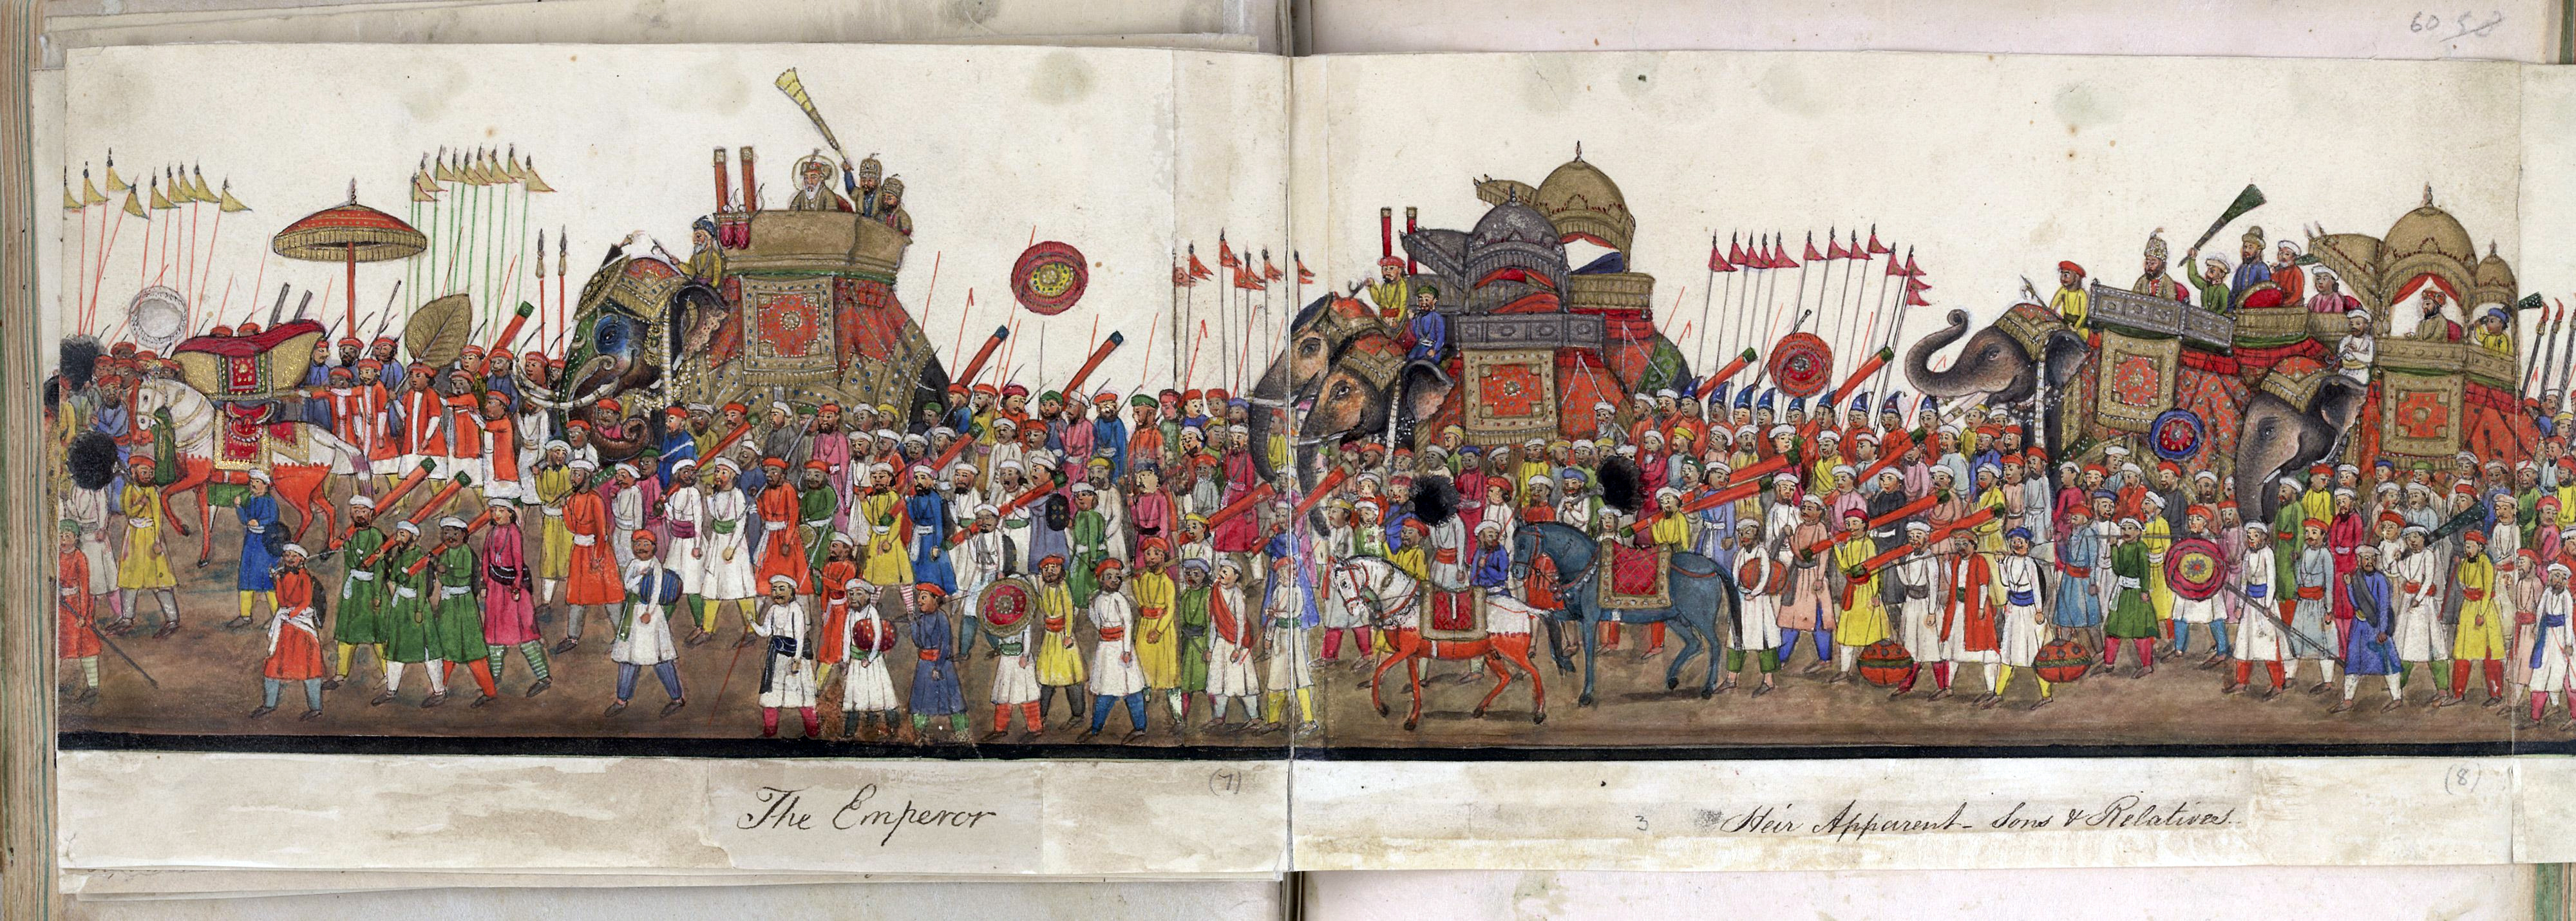 60
The Emperor
(7)
3
Heir Apparent - Sons & Relatives.
(8)